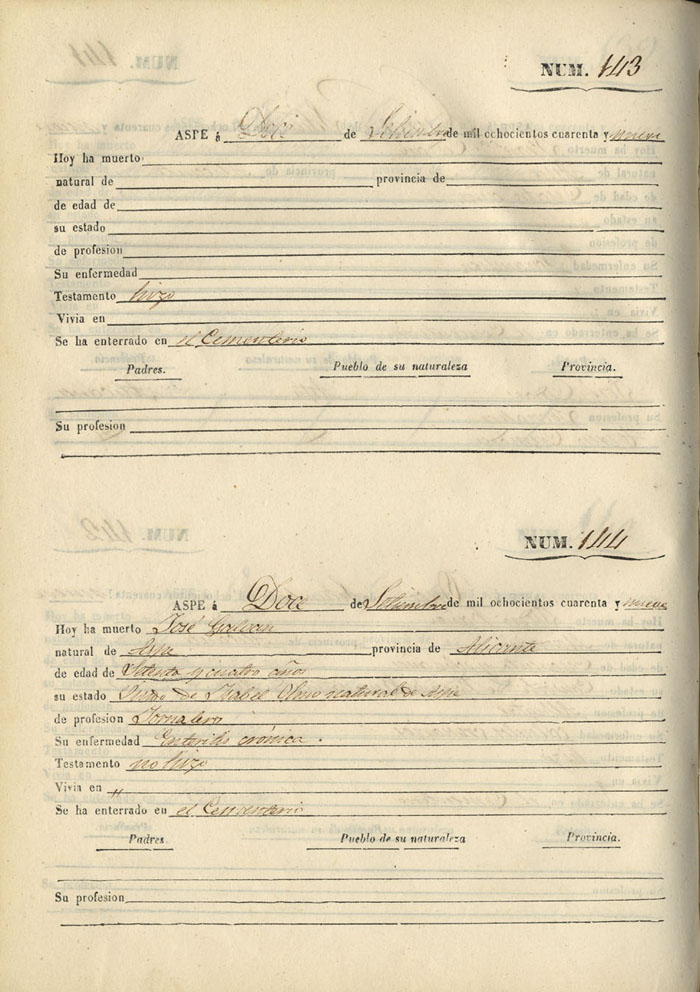 NUM. 143
ASPE á Doce de Setiembre de mil ochocientos cuarenta y nueve
Hoy ha muerto
natural de provincia de
de edad de
su estado
de profesion
Su enfermedad
Testamento hizo
Vivia en
Se ha enterrado en el Cementerio
Padres. Pueblo de su naturaleza Provincia.
Su profesion
NUM. 144
ASPE á Doce de Setiembre de mil ochocientos cuarenta y nueve
Hoy ha muerto José Galvan
natural de Aspe provincia de Alicante
de edad de Setenta y cuatro años
su estado Viudo de Isabel Olmo natural de Aspe
de profesion Jornalero
Su enfermedad Enteritis crónica.
Testamento no hizo
Vivia en "
Se ha enterrado en el Cementerio
Padres. Pueblo de su naturaleza Provincia.
Su profesion